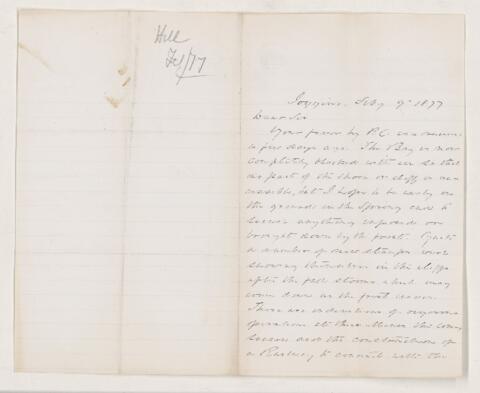 Hill
Feb/77
Joggins. Feby 9th 1877
Dear Sir
Your favor by P.C. was received
a few days ago. The Bay is now
completely blocked with ice so that
no part of the shore or cliff is ac-
cessible, but I hope to be early on
the grounds in the Spring and to
secure anything exposed or
brought down by the frost. Quite
a number of stumps were
showing themselves in the cliffs
after the fall storms which may
come down as the frost
There are indications of vigorous
operations at the Mines this coming
season and the construction of
a Railway to connect with the